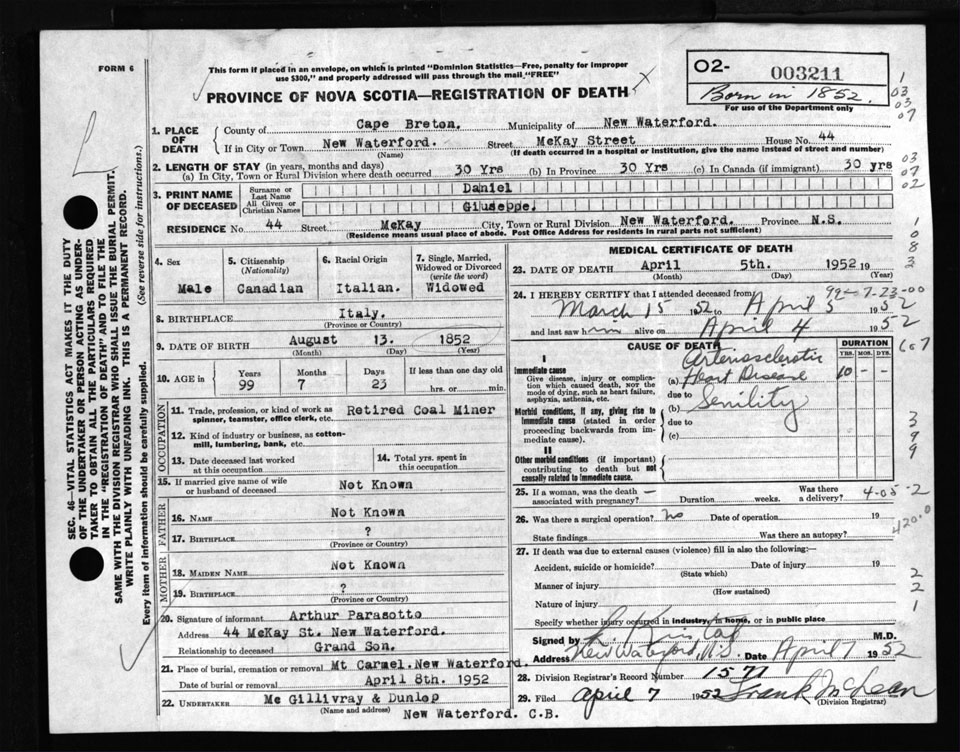 FORM 6
This form if placed in an envelope, on which is printed "Dominion Statistics—Free, penalty for improper
use $300," and properly addressed will pass through the mail "FREE"
PROVINCE OF NOVA SCOTIA—REGISTRATION OF DEATH
02- 003211
Born in 1852.
For use of the Department only
1. PLACE OF DEATH
County of Cape Breton. Municipality of New Waterford.
If in City or Town New Waterford. Street McKay Street House No. 44
(Name) (If death occurred in a hospital or institution, give the name instead of street and number)
2. LENGTH OF STAY (in years, months and days)
(a) In City, Town or Rural Division where death occurred 30 Yrs (b) In Province 30 Yrs (c) In Canada (if immigrant) 30 yrs
3. PRINT NAME OF DECEASED
Surname or Last Name Daniel
All Given or Christian Names Giuseppe.
RESIDENCE No. 44 Street McKay City, Town or Rural Division New Waterford. Province N.S.
(Residence means usual place of abode. Post Office Address for residents in rural parts not sufficient)
4. Sex Male
5. Citizenship (Nationality) Canadian
6. Racial Origin Italian.
7. Single, Married, Widowed or Divorced (write the word) Widowed
8. BIRTHPLACE Italy.
(Province or Country)
9. DATE OF BIRTH August 13. 1852
(Month) (Day) (Year)
10. AGE in Years 99 Months 7 Days 23 If less than one day old hrs. or min.
OCCUPATION
11. Trade, profession, or kind of work as spinner, teamster, office clerk, etc. Retired Coal Miner
12. Kind of industry or business, as cotton-mill, lumbering, bank, etc.
13. Date deceased last worked at this occupation
14. Total yrs. spent in this occupation
15. If married give name of wife or husband of deceased Not Known
FATHER
16. NAME Not Known
17. BIRTHPLACE ?
(Province or Country)
MOTHER
18. MAIDEN NAME Not Known
19. BIRTHPLACE ?
(Province or Country)
20. Signature of informant Arthur Parasotto
Address 44 McKay St. New Waterford.
Relationship to deceased Grand Son.
21. Place of burial, cremation or removal Mt Carmel.New Waterford.
Date of burial or removal April 8th. 1952
22. UNDERTAKER Mc Gillivray & Dunlop
(Name and address) New Waterford. C.B.
MEDICAL CERTIFICATE OF DEATH
23. DATE OF DEATH April 5th. 1952 19
(Month) (Day) (Year)
92-7-23-00
24. I HEREBY CERTIFY that I attended deceased from
March 15 1952 to April 5 1952
and last saw him alive on April 4 1952
CAUSE OF DEATH
DURATION
YRS. MOS. DYS.
I
Immediate cause
Give disease, injury or complication which caused death, NOT the mode of dying, such as heart failure, asphyxia, asthenia, etc.
(a) Arteriosclerotic Heart Disease 10 - -
due to
Morbid conditions, if any, giving rise to immediate cause (stated in order proceeding backwards from immediate cause).
(b) Senility
due to
(c)
II
Other morbid conditions (if important) contributing to death but not causally related to immediate cause.
25. If a woman, was the death associated with pregnancy? — Duration weeks. Was there a delivery?
4-05-2
26. Was there a surgical operation? no Date of operation 19
State findings Was there an autopsy?
420.0
27. If death was due to external causes (violence) fill in also the following:—
Accident, suicide or homicide? Date of injury 19
(State which)
Manner of injury
(How sustained)
Nature of injury
Specify whether injury occurred in industry, in home, or in public place
Signed by M.D.
Address New Waterford, N.S. Date April 7 1952
28. Division Registrar's Record Number 1577
29. Filed April 7 1952 Frank McLean
(Division Registrar)
SEC. 46—VITAL STATISTICS ACT MAKES IT THE DUTY
OF THE UNDERTAKER OR PERSON ACTING AS UNDER-
TAKER TO OBTAIN ALL THE PARTICULARS REQUIRED
IN THE "REGISTRATION OF DEATH" AND TO FILE THE
SAME WITH THE DIVISION REGISTRAR WHO SHALL ISSUE THE BURIAL PERMIT.
WRITE PLAINLY WITH UNFADING INK. THIS IS A PERMANENT RECORD.
Every item of information should be carefully supplied. (See reverse side for instructions.)
1
03
03
07
03
07
02
1
0
8
3
607
3
9
9
2
2
1